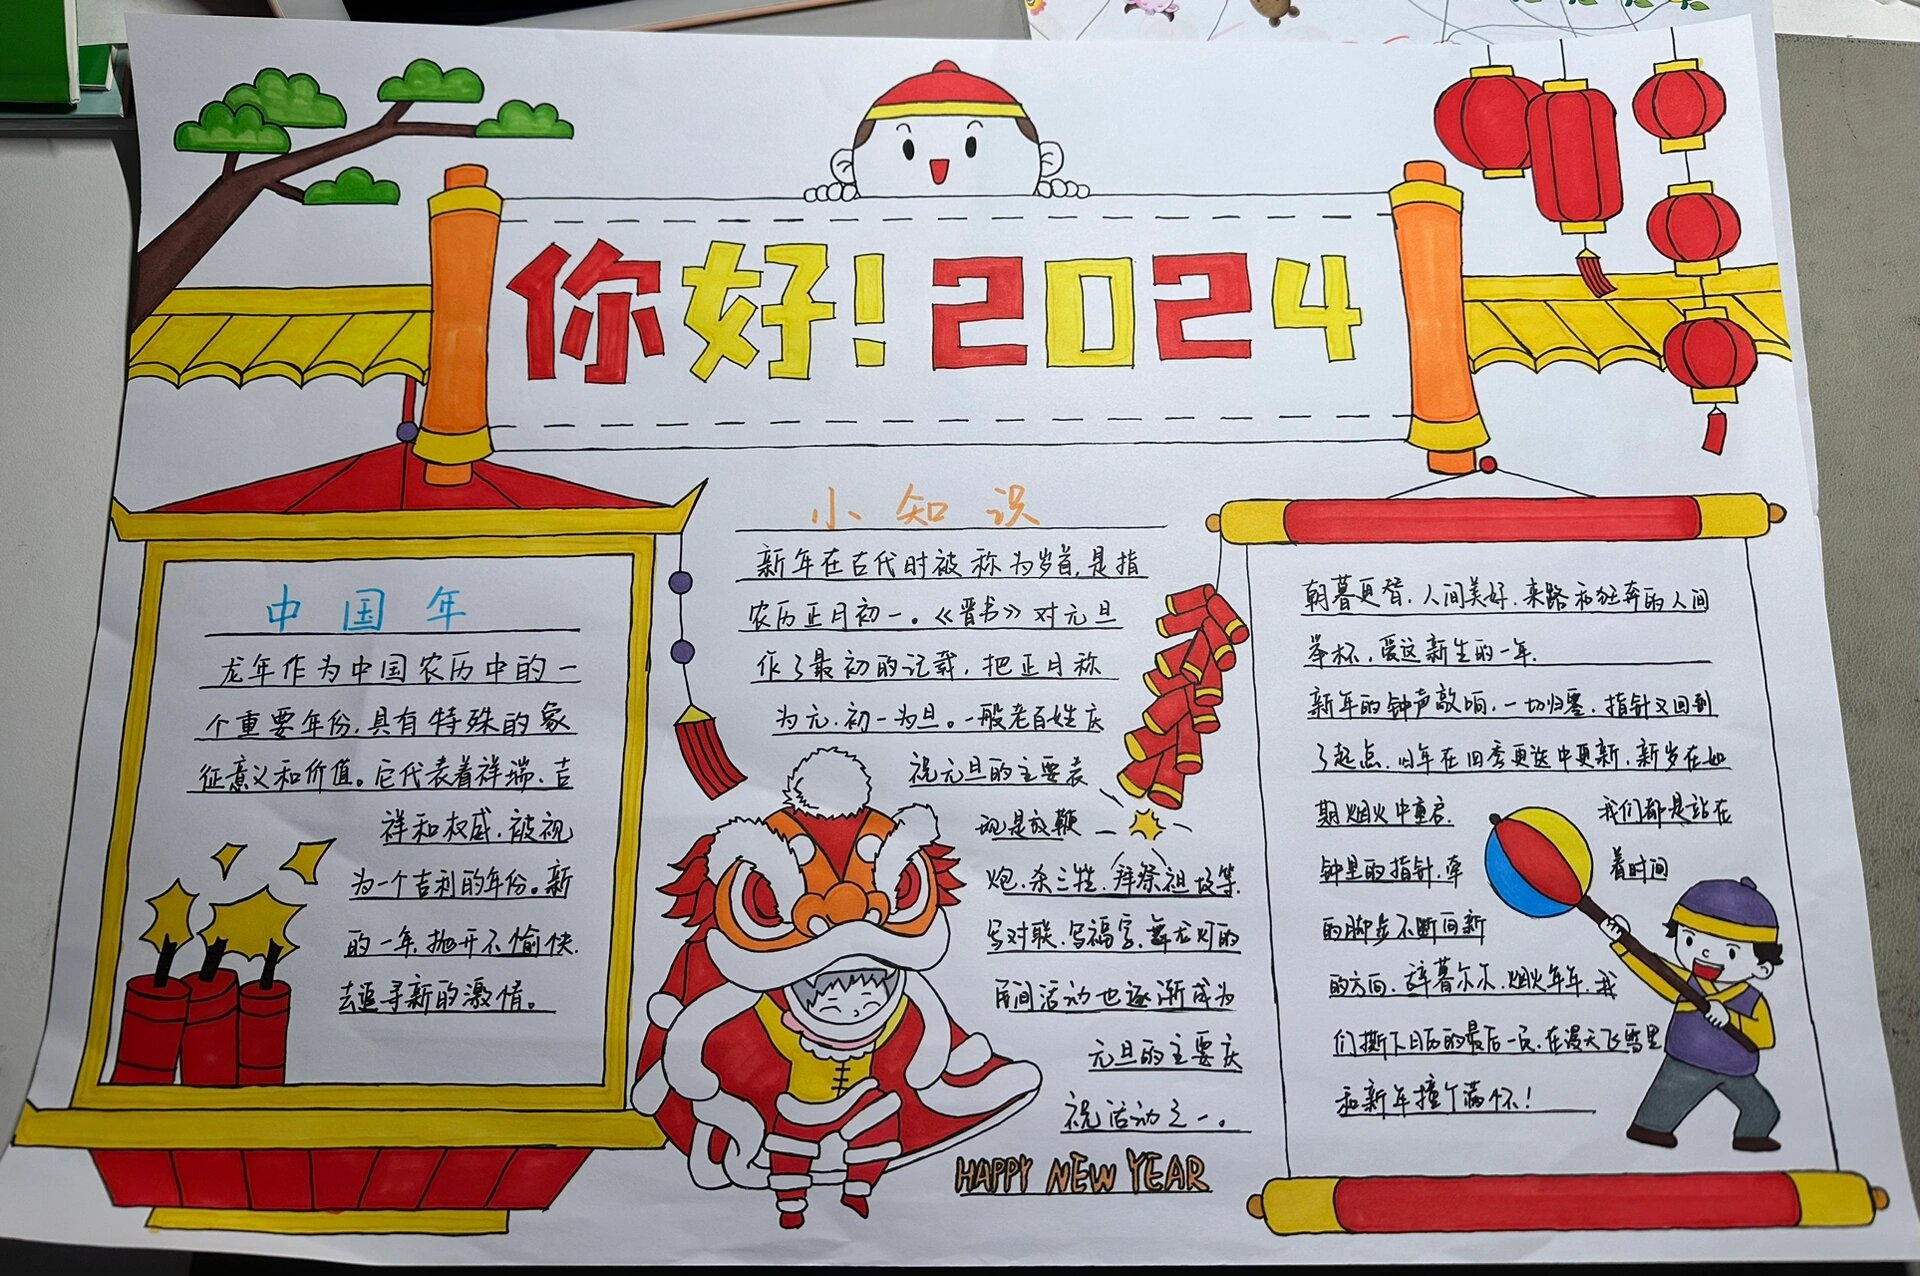 你好！2024
中国年
龙年作为中国农历中的一
个重要年份，具有特殊的象
征意义和价值。它代表着祥瑞、吉
祥和权威，被视
为一个吉利的年份。新
的一年，抛开不愉快，
去追寻新的激情。
小知识
新年在古代时被称为岁首，是指
农历正月初一。《晋书》对元旦
作了最初的记载，把正月称
为元，初一为旦。一般老百姓庆
祝元旦的主要表
现是放鞭
炮、杀三牲、拜祭祖坟等，
写对联、写福字、舞龙灯的
民间活动也逐渐成为
元旦的主要庆
祝活动之一。
HAPPY NEW YEAR
朝暮更替，人间美好，来路和狂奔的人间
举杯，爱这新生的一年，
新年的钟声敲响，一切归零，指针又回到
了起点，旧年在四季更迭中更新，新岁在如
期烟火中重启， 我们都是站在
钟里的指针，牵 着时间
的脚步不断向新
的方向，辞暮尔尔，烟火年年，我
们撕下日历的最后一页，在漫天飞雪里
和新年撞个满怀！